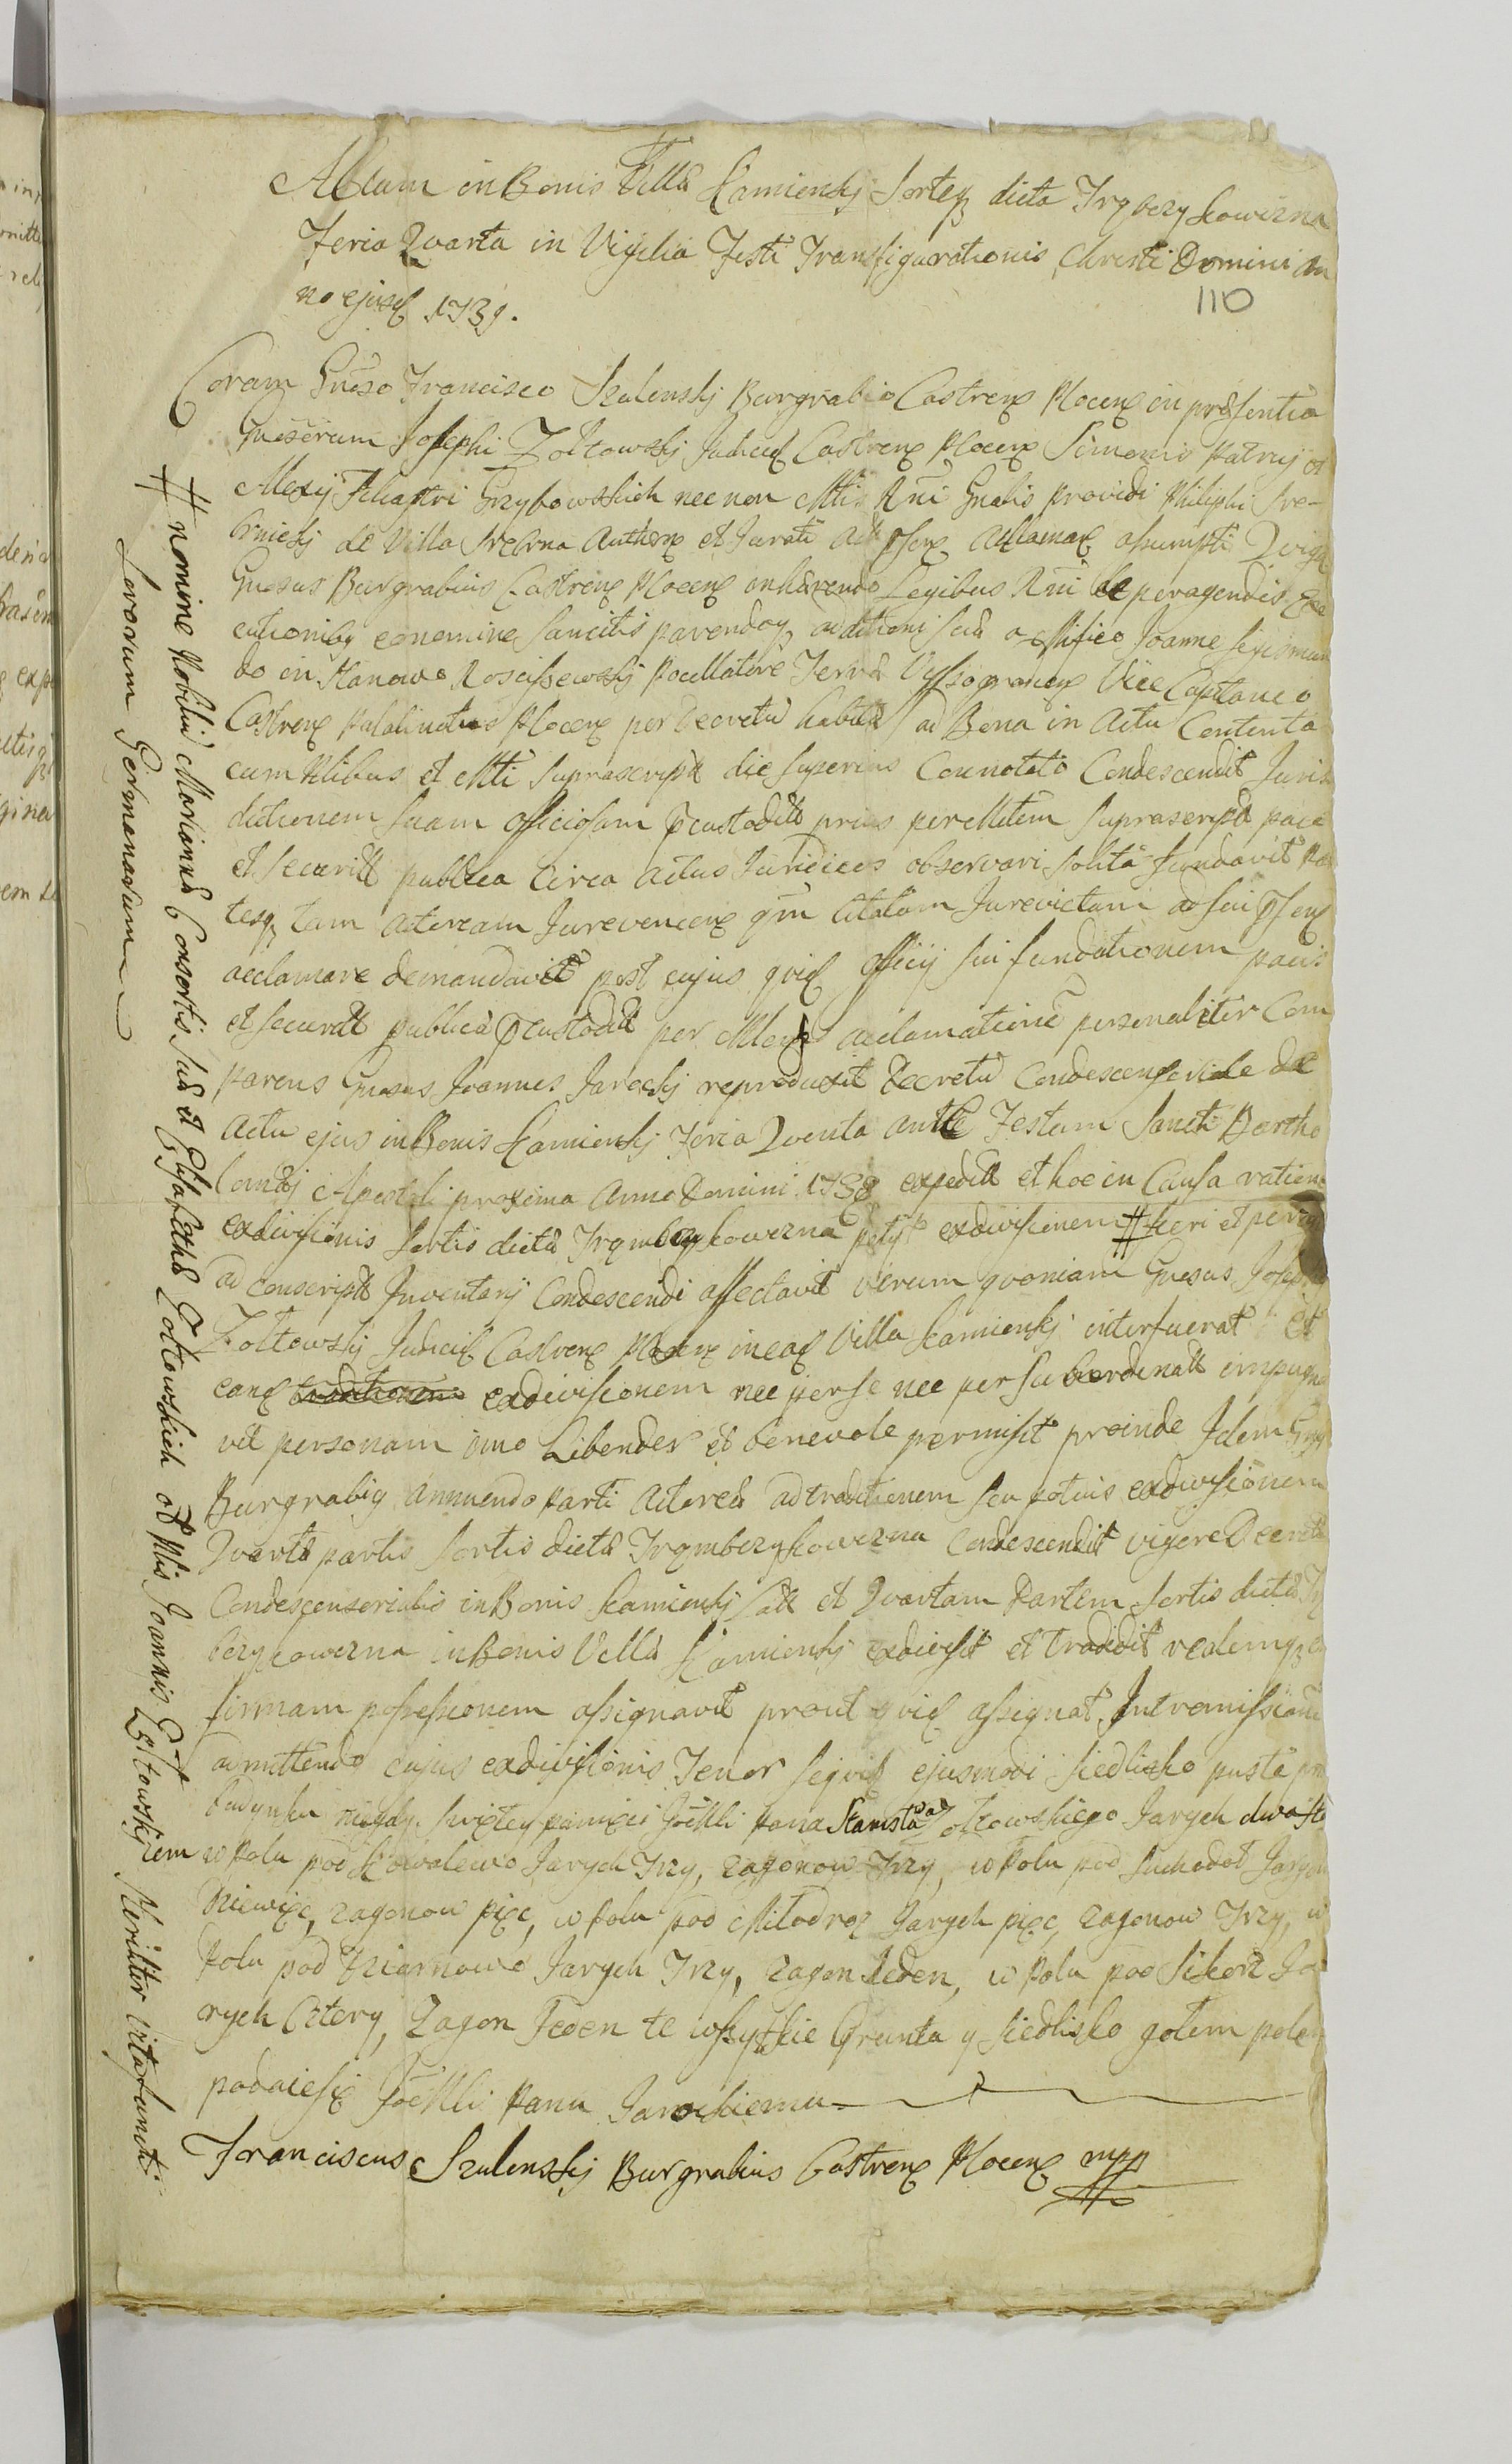 Actum in Bonis Villæ Kamienskj Sorteq dicta Trąbczykowizna
Feria Qvarta in Vigilia Festi Transfigurationis Christi Domini An
no ejusd 1739.
110
Coram Gnoso Francisco Szulenskj Burgrabio Castren Plocen in præsentia
Gnosorum Josephi Zołtowskj Judicis Castren Plocen Simonis Patruj et
Alexij Filiastri Grzybowskich nec non Mtis Rni Gnalis providi Philiphi Sre-
brnickj de Villa Srebrna Authen et Jurati ad psen acclaman assumpti Qviqz
Gnosus Burgrabius Castren Plocen inhærendo Legibus Rni de peragendis Exe
cutionibq eonomine sancitis parendoq additioni suæ a Mfico Joanne Sigismun
do in Kanowo Rosciszewskj Pocillatore Terræ Vyssogrden Vice Capitaneo
Castren Palatinatus Plocen per Decretū habitæ ad Bona in Actu Contenta
cum Nlibus et Mtī suprascript die superius Connotato Condescendit Juris
dictionem suam officiosam pcustodita prius per Mltem suprascript pace
et securitt publica circa actus Juridicos observari solita fundavit Par
tesq tam actoream Jurevincen qm citatam Jurevictam ad sui psen
acclamare demandavit post cujus qvid officij sui fundationem pacis
et securitt publicæ pcustodiā per Mlem acclamationē personaliter Com
parens Gnosus Joannes Jarockj reproduxit Decretū Condescensoriale de
Actu ejus in Bonis Kamienskj Feria Qvinta ante Festum Sancti Bartho
lomæj Apostoli proxima Anno Domini 1738 expedit et hoc in Causa ratione
exdivisionis Sortis dictæ Trąmbczykowizna petijt exdivisionem # fieri et perag
ad conscript Inventarij Condescendi affectavit verum qvoniam Gnosus Joseph
Zołtowskj Judicis Castren Plocen in ead Villa Kamienskj interfuerat et
eand exdivisionem nec per se nec per subordinatt impugna
vit personam imo Libenter et benevole permisit proinde Idem Gnsus
Burgrabiq annuendo Parti Actoreæ ad traditionem seu potius exdivisionem
Qvartæ partis Sortis dictæ Trąmbczykowizna Condescendit vigore Decreti
Condescensorialis in Bonis Kamienskj Latt et Qvartam Partem Sortis dictæ Trą
bczykowizna in Bonis Villæ Kamienskj exdivisit et tradidit realemqz ea
firmam possessionem assignavit prout qvid assignat Intromissionē
admittendo cujus exdivisionis Tenor seqvit ejusmodi Siedlisko puste po
budynku niegdy swiętey pamięci Jmci Pana Stanisława Zołtowskiego Jarych dwoisto
w Polu pod Kowalewo Jarych Trzy, zagonow Trzy, w Polu pod Suchodoł Jarych
Dziewięc, zagonow pięc, w Polu pod Miłodroz Jarych pięc, zagonow Trzy, w
Polu pod Dziarnowo Jarych Trzy, zagon Jeden, w Polu pod Sikorz Ja
rych Cztery, Zagon Jeden te wszystkie Grunta y siedlisko gołem polem
podaiesię Jmci Panu Jarockiemu
Franciscus Szulenskj Burgrabius Castren Plocen mpp
# nomine Nobiliū Mariannæ Consortis suæ et Elisabethæ Zołtowskich ac Nlis Joannis Zołtowskjem pleniter vita functi
Sororum Germanarum